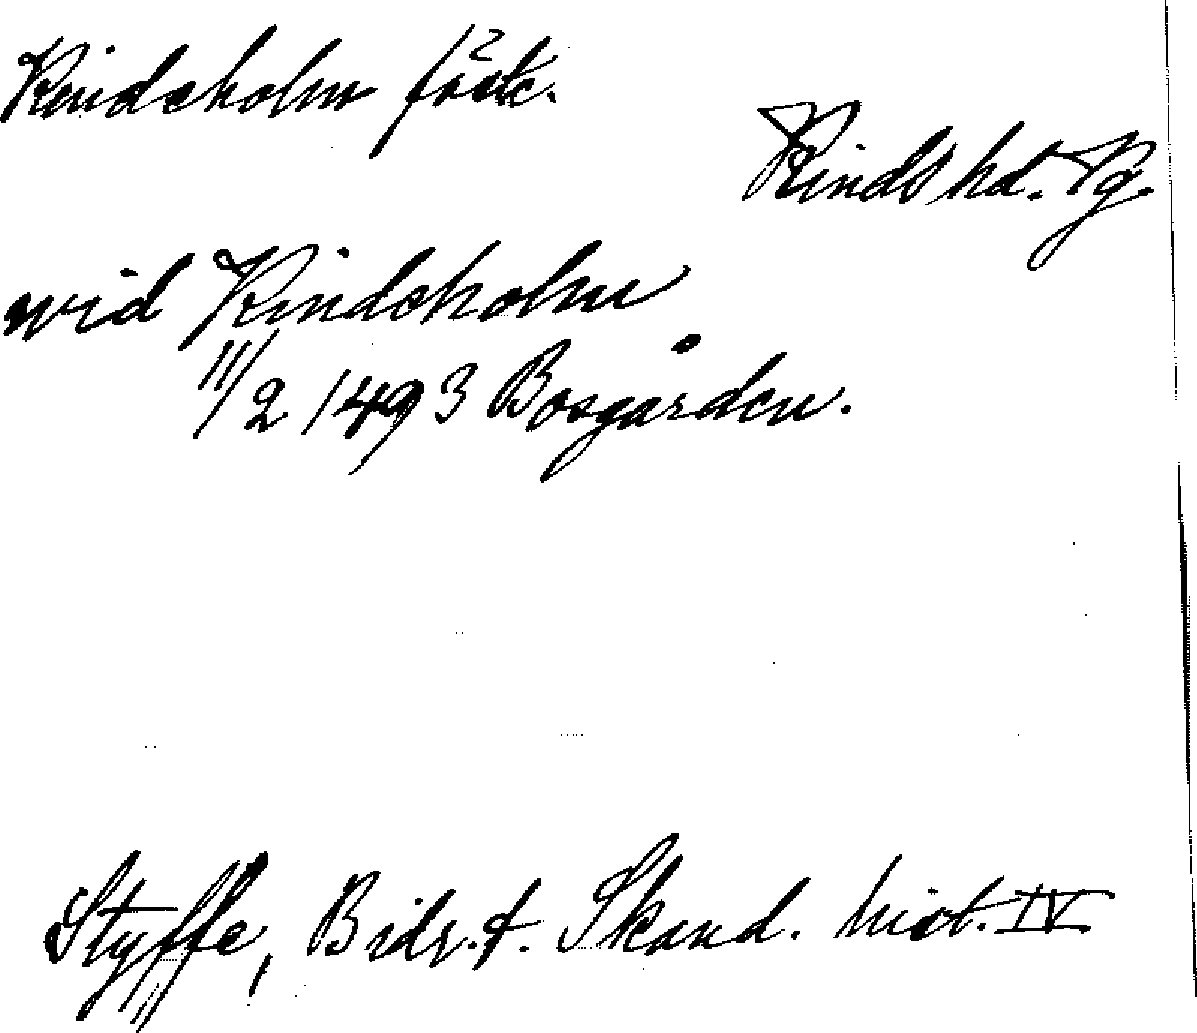 Rindsholm fäste.
Kinds hd. Vg.
wid Kindsholm
11/2 1493 Bosgården.
Styffe, Bidr. t. Skand. hist. IV